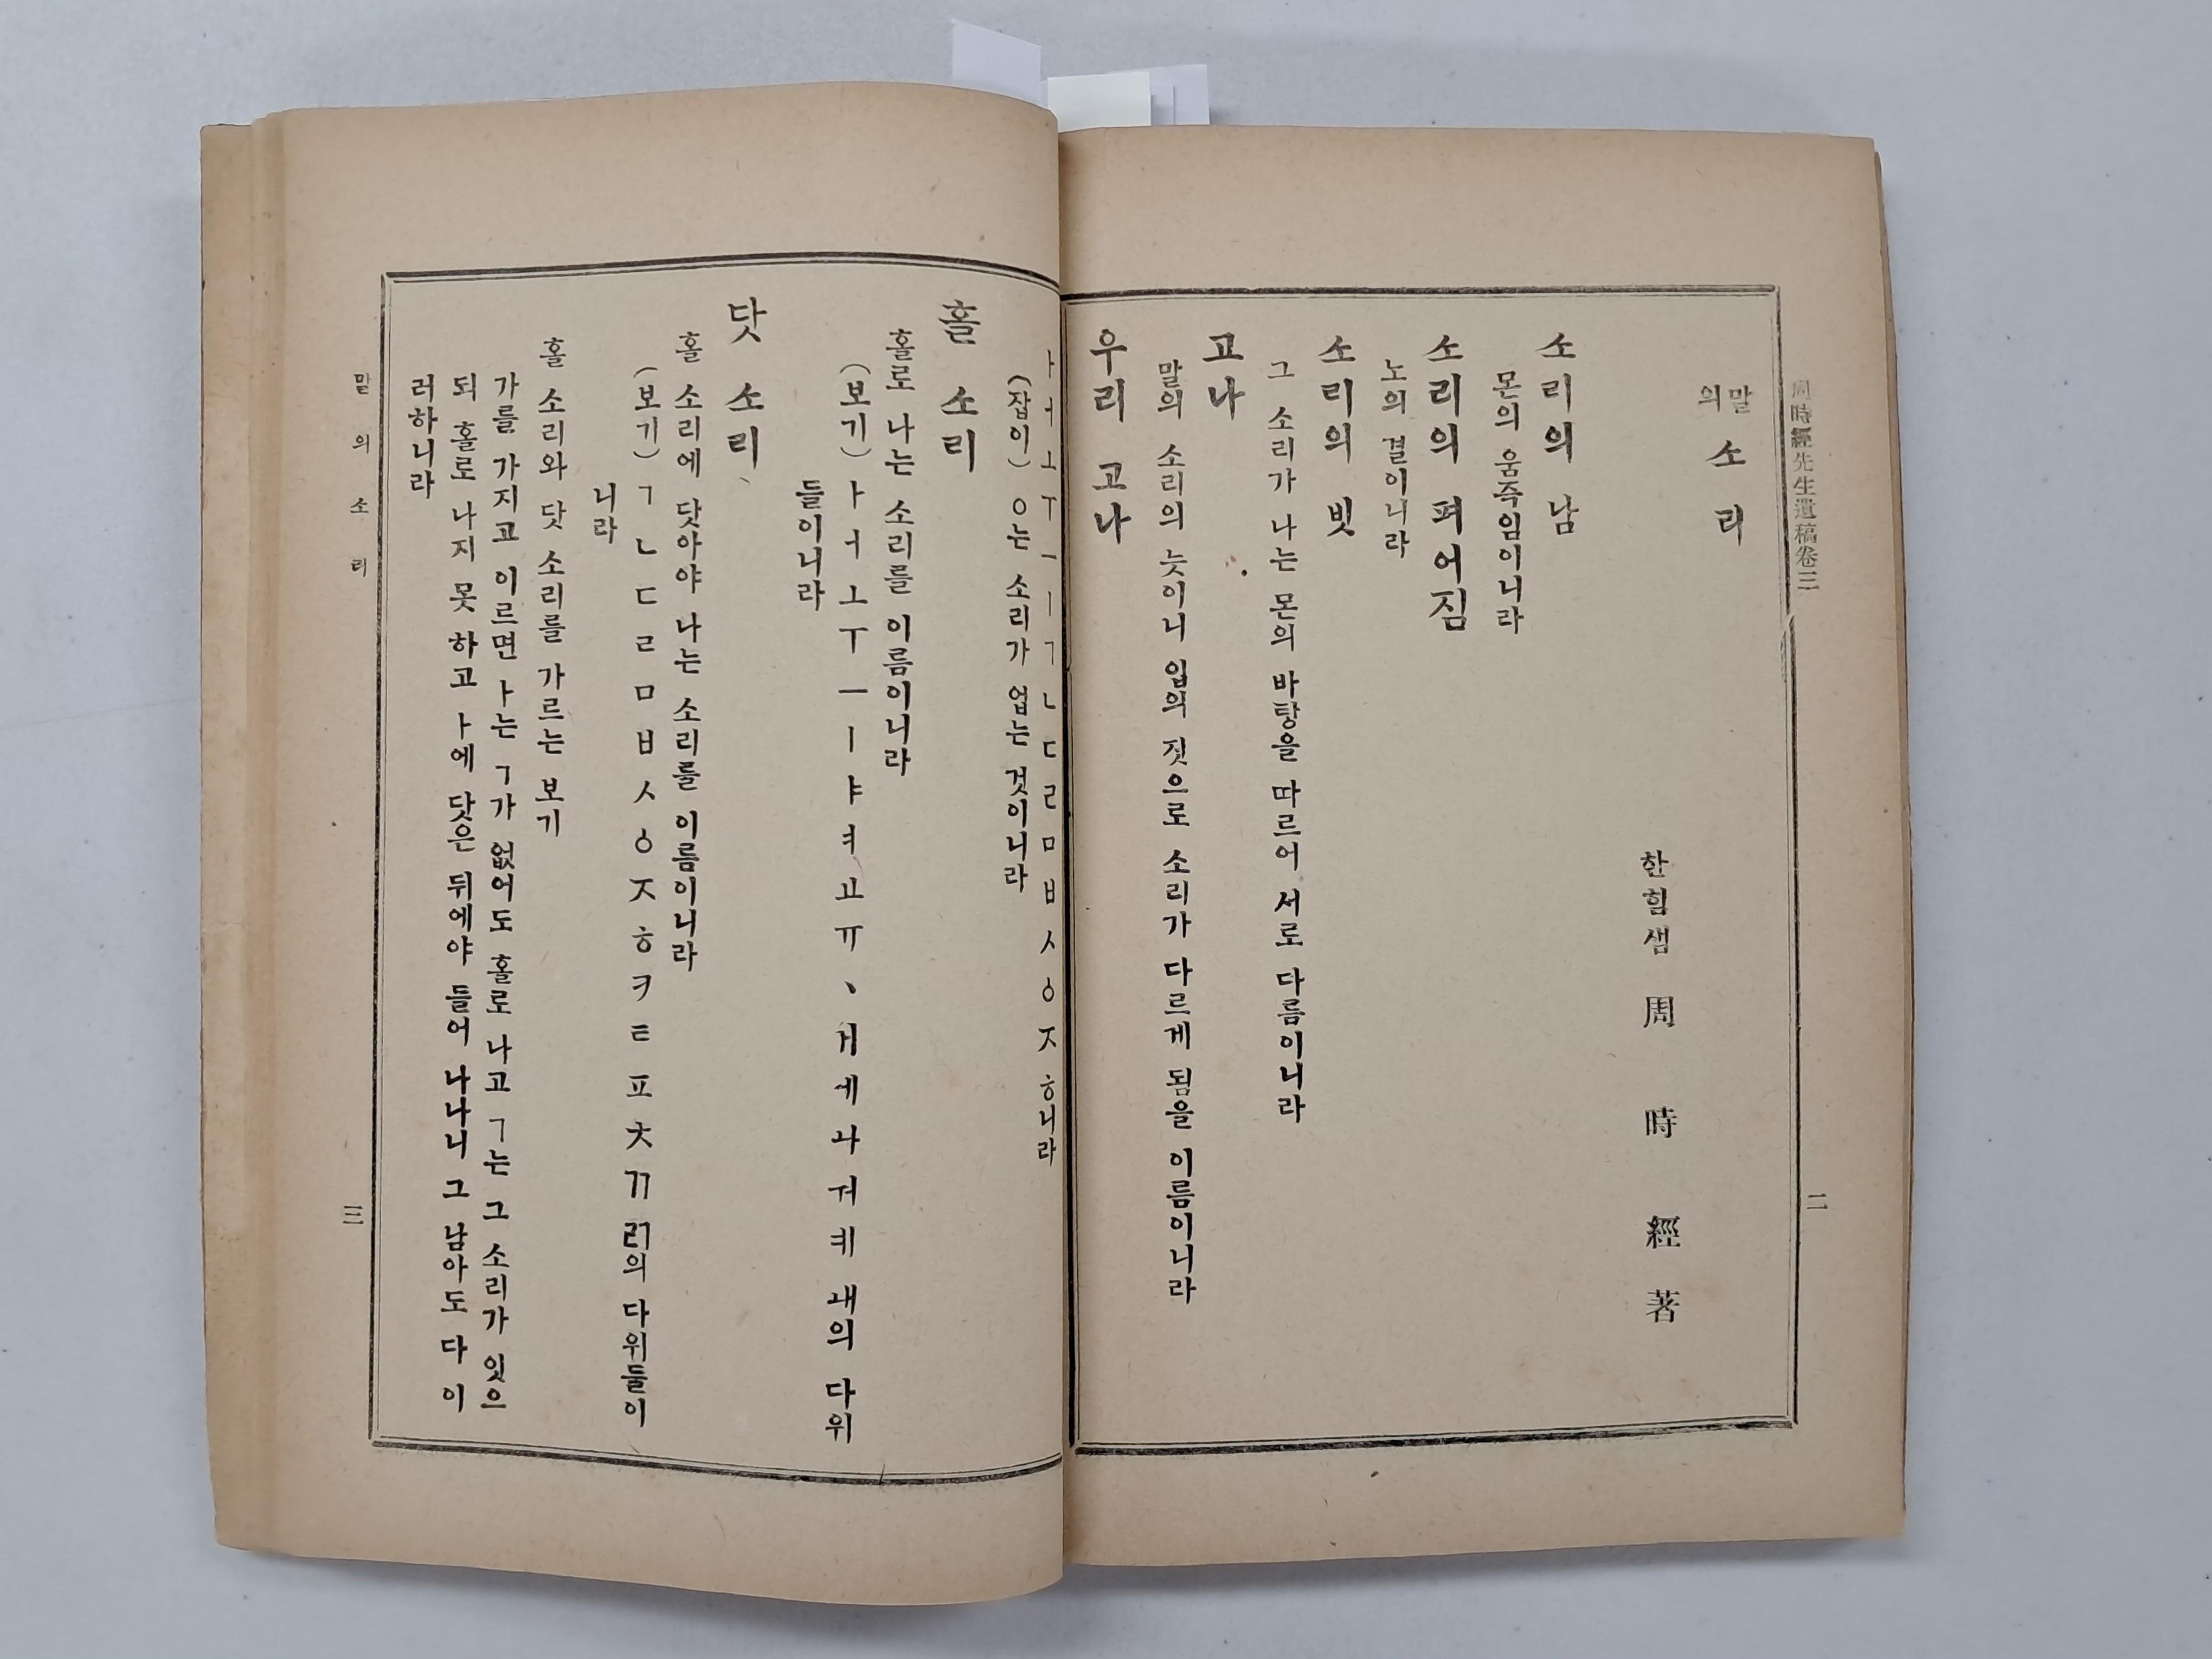 周時經先生遺稿卷三
말의 소리
한힘샘 周時經著
소리의 남
몬의 움죽임이니라
소리의 펴어짐
노의 결이니라
소리의 빗
그 소리가 나는 몬의 바탕을 따르어 서로 다름이니라
고나
말의 소리의 늣이니 입의 짓으로 소리가 다르게 됨을 이름이니라
우리 고나
二
ㅏㅓㅗㅜㅡㅣㄱㄴㄷㄹㅁㅂㅅㆁㅈㅎ니라
(잡이) ㅇ는 소리가 업는 것이니라
홀 소리
홀로 나는 소리를 이름이니라
(보기) ㅏㅓㅗㅜㅡㅣㅑㅕㅛㅠㆍㅐㅔㅘㅝㅖㅙ의 다위
들이니라
닷 소리
홀 소리에 닷아야 나는 소리를 이름이니라
(보기) ㄱㄴㄷㄹㅁㅂㅅㆁㅈㅎㅋㅌㅍㅊㄲㄺ의 다위들이
니라
홀 소리와 닷 소리를 가르는 보기
가를 가지고 이르면 ㅏ는 ㄱ가 없어도 홀로 나고 ㄱ는 그 소리가 잇으
되 홀로 나지 못 하고 ㅏ에 닷은 뒤에야 들어 나나니 그 남아도 다 이
러하니라
말의소리
三